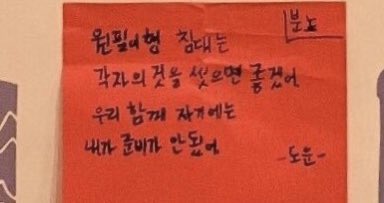 분노
원필이형 침대는
각자의 것을 썼으면 좋겠어
우리 함께 자기에는
내가 준비가 안됐어
-도운-